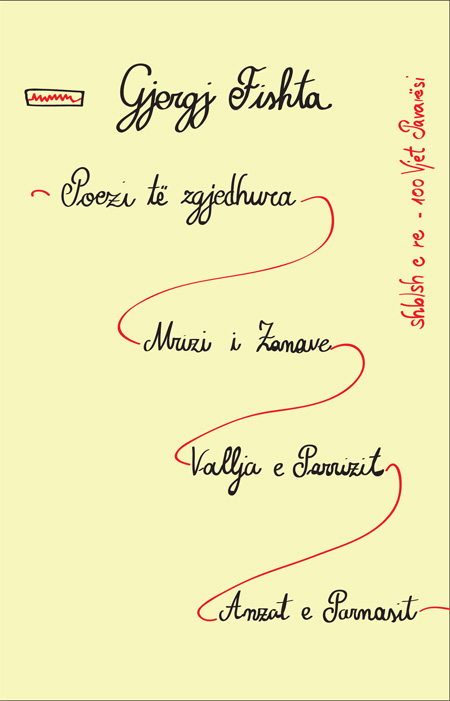 Gjergj Fishta
Poezi të zgjedhura
Mrizi i Zanave
Vallja e Parrizit
Anzat e Parnasit
shb/sh e re - 100 Vjet Pavarësi